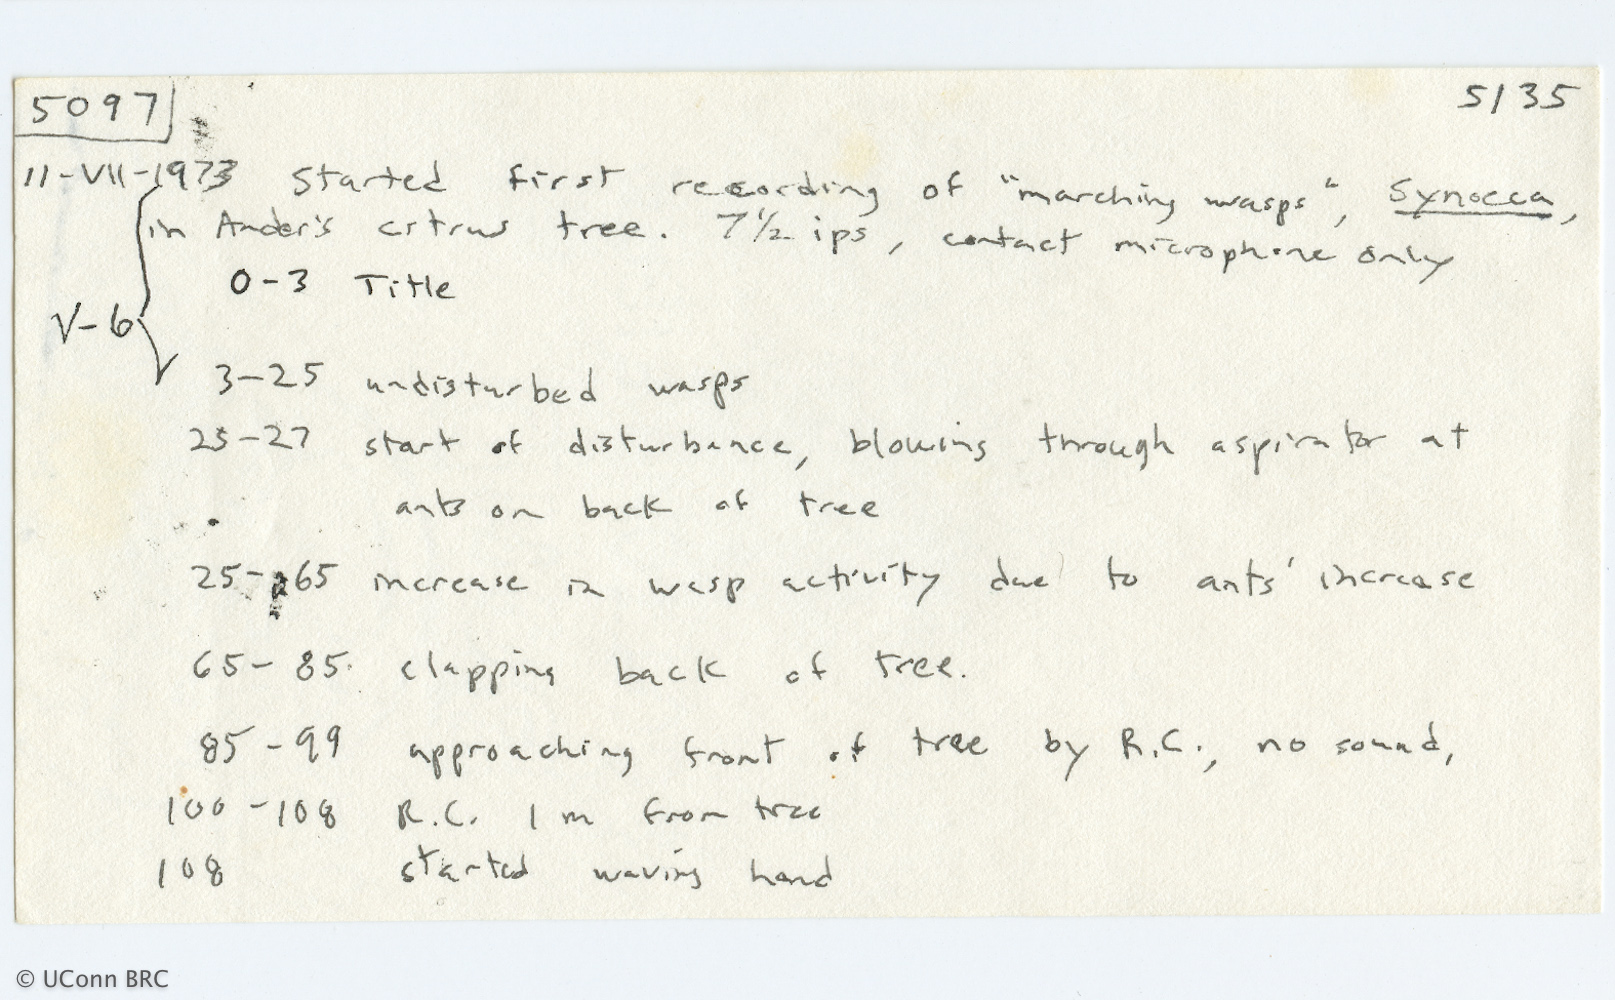 5097
5135
11-VII-1973 Started first recording of "marching wasps", Synoeca,
in Ander's citrus tree. 7½ ips, contact microphone only
0-3 Title
V-6
3-25 undisturbed wasps
25-27 start of disturbance, blowing through aspirator at
ants on back of tree
25-65 increase in wasp activity due to ants' increase
65-85 clapping back of tree.
85-99 approaching front of tree by R.C., no sound,
100-108 R.C. 1 m from tree
108 started waving hand
© UConn BRC